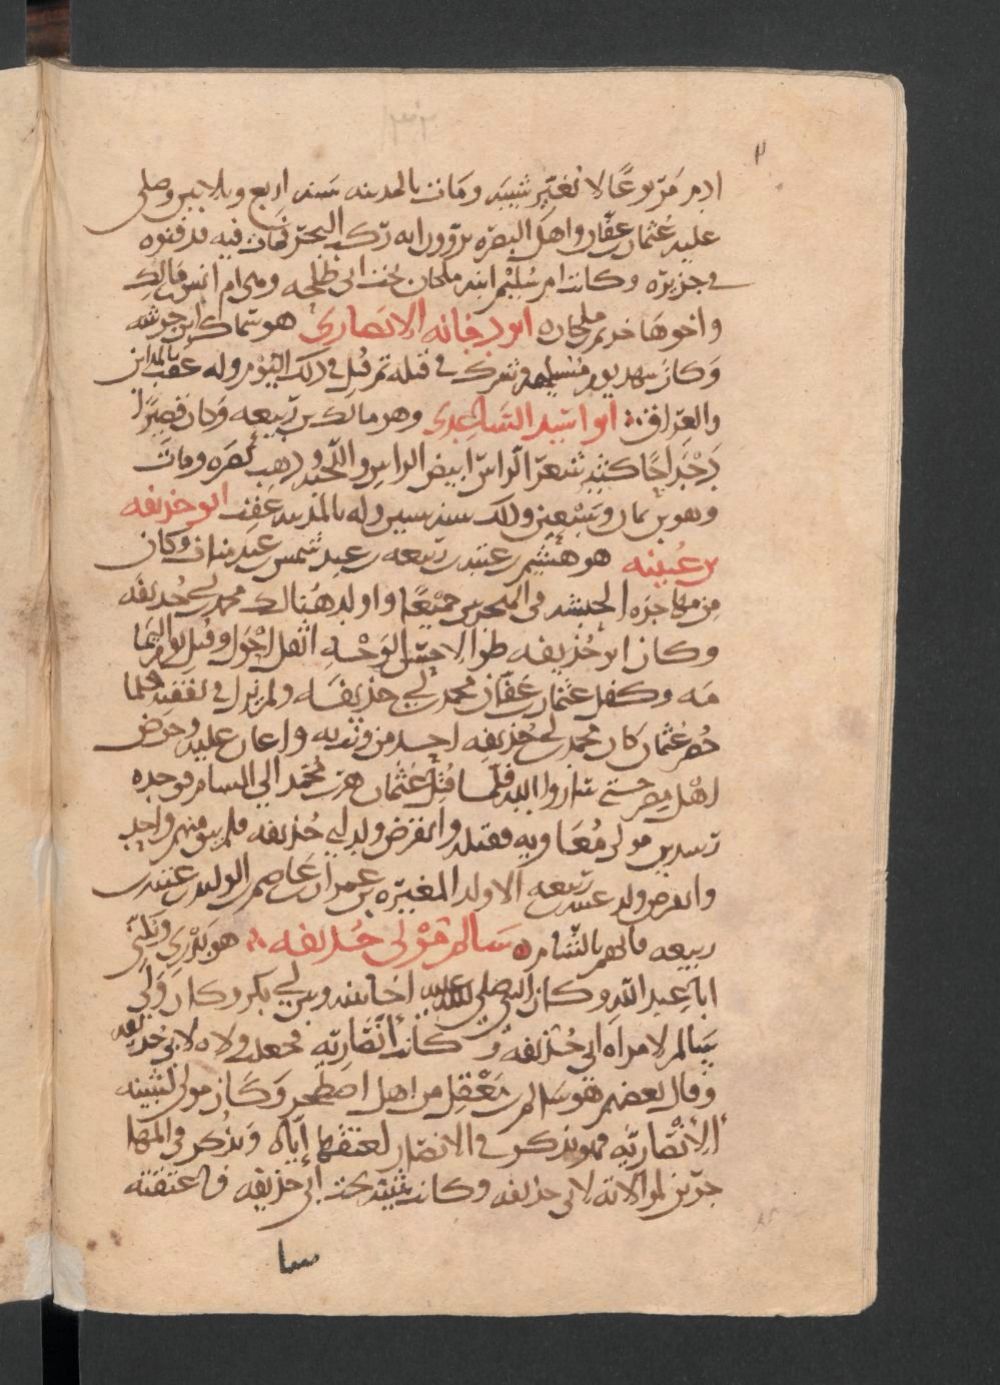 ادم مربوعا لا يغير شيبه ومات بالمدينه سنه اربع وثلاثين وصلى
عليه عثمان بن عفان واهل البصره يروون انه ركب البحر فمات فيه فدفنوه
في جزيره وكانت ام سليم ابنه ملحان تحت ابي طلحه وهي ام انس بن مالك
واخوها حرام بن ملحان ابو دجانه الانصاري هو سماك بن خرشه
وكان شهد يوم مسيلمه وشرك في قتله ثم قتل في ذلك اليوم وله عقب بالمداين
والعراق ابو اسيد الساعدي وهو مالك بن ربيعه وكان قصيرا
دحداحا كثير شعر الراس ابيض الراس واللحيه وذهب بصره ومات
وهو بن ثمان وسبعين وذلك سنه ستين وله بالمدينه عقب ابو حذيفه
بن عتبه هو هشيم بن عتبه بن ربيعه بن عبد شمس بن عبد مناف وكان
من مهاجره الحبشه في الهجرتين جميعا واولد هنالك محمد بن ابي حذيفه
وكان ابو حذيفه طوالا حسن الوجه اثعل احول وقتل يوم اليما
مه وكفل عثمان بن عفان محمد بن ابي حذيفه ولم يزل في نفقته فلما
حصر عثمان كان محمد بن ابي حذيفه احد من وثب به واعان عليه وحرض
اهل مصر حتى ساروا اليه فلما قتل عثمان هرب محمد الي الشام فوجده
رشدين مولى معاويه فقتله وانقرض ولد ابي حذيفه فلم يبق منهم واحد
وانقرض ولد عتبه بن ربيعه الا ولد المغيره بن عمران بن عاصم بن الوليد بن عتبه بن
ربيعه فانهم بالشام سالم مولى حذيفه هو بدري ويكنى
ابا عبد الله وكان النبي صلى الله عليه اخا بينه وبين ابي بكر وكان ولي
سالم لامراه ابي حذيفه وكانت انصاريه فجعلت ولاه لابي حذيفه
وقال بعضهم هو سالم بن معقل من اهل اصطخر وكان مولى لثبيته
الانصاريه فهو يذكر في الانصار لعتقها اياه ويذكر في المها
جرين لموالاته لابي حذيفه وكانت ثبيته تحت ابي حذيفه فاعتقته
سا